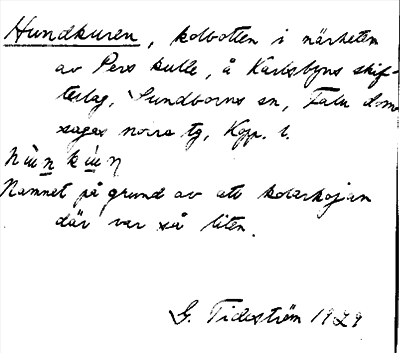 Hundkuren, kolbotten i närheten
av Pers kulle, å Karlsbyns skif-
teslag, Sundborns sn, Falu doms
sagas norra tg, Kopp. l.
Namnet på grund av att kolarkojan
där var så liten.
G. Tideström 1929